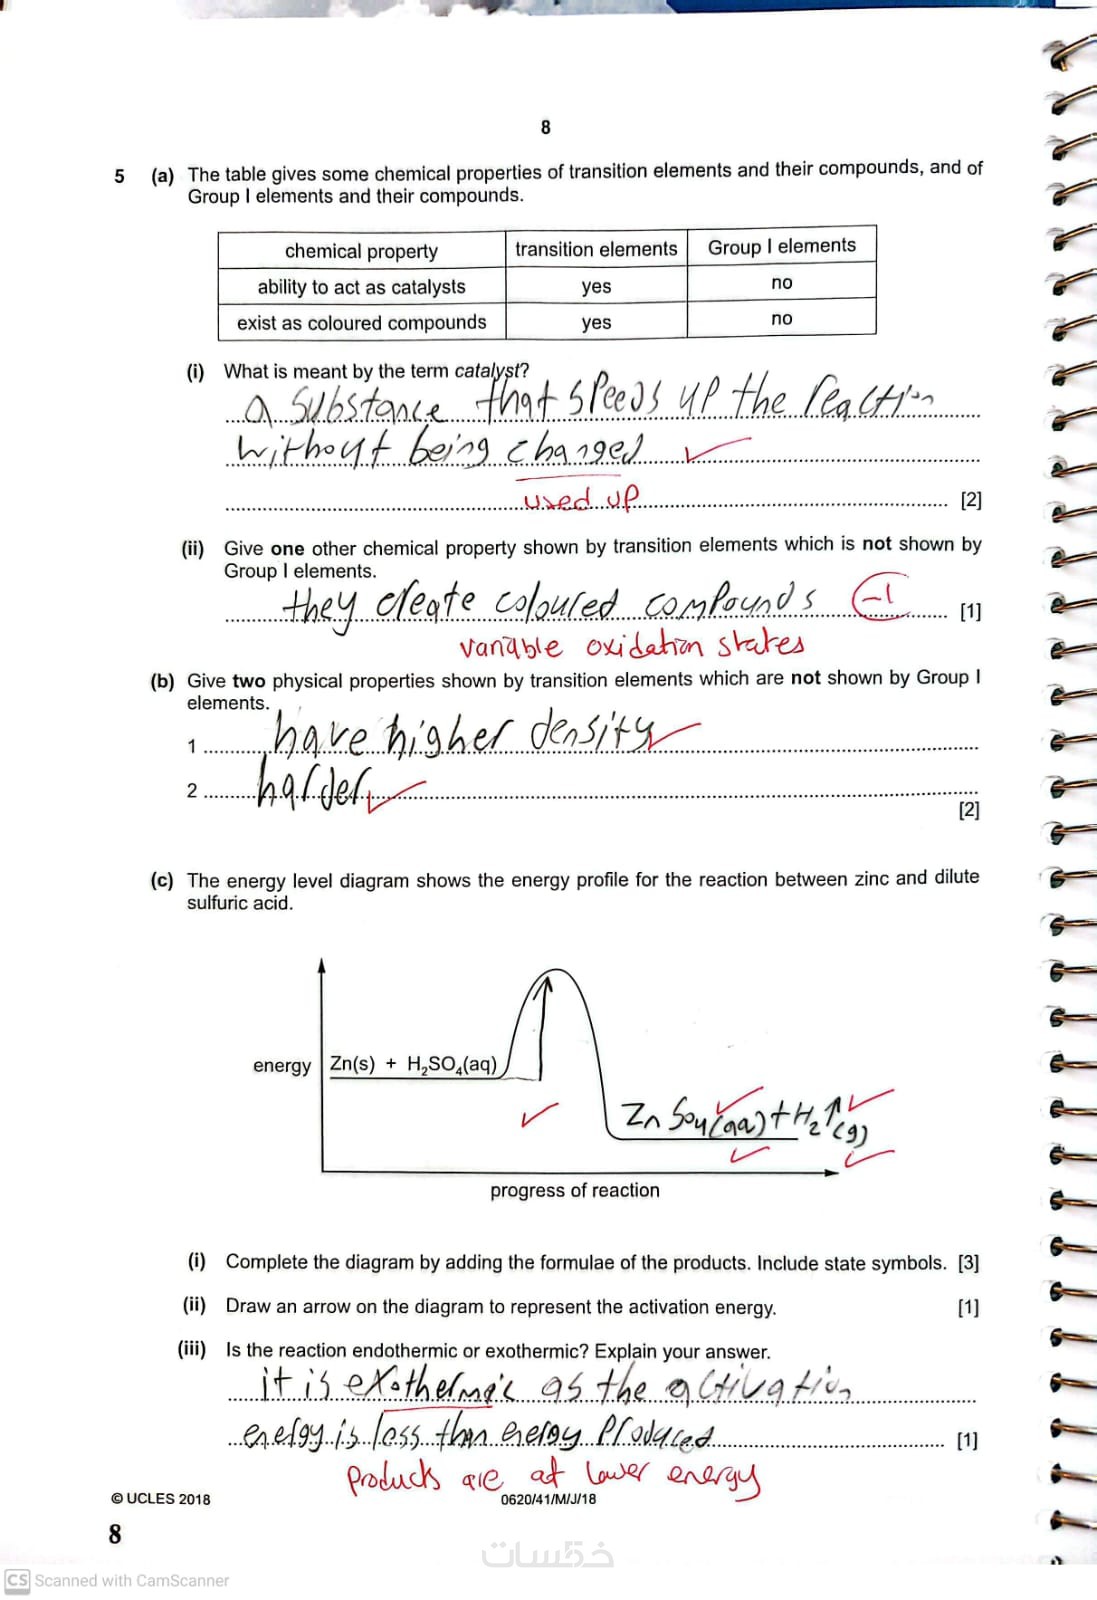 8
5 (a) The table gives some chemical properties of transition elements and their compounds, and of
Group I elements and their compounds.
chemical property transition elements Group I elements
ability to act as catalysts yes no
exist as coloured compounds yes no
(i) What is meant by the term catalyst?
a substance that speeds up the reaction
without being changed
used up [2]
(ii) Give one other chemical property shown by transition elements which is not shown by
Group I elements.
they create coloured compounds -1 [1]
variable oxidation states
(b) Give two physical properties shown by transition elements which are not shown by Group I
elements.
1 have higher density
2 harder
[2]
(c) The energy level diagram shows the energy profile for the reaction between zinc and dilute
sulfuric acid.
energy Zn(s) + H₂SO₄(aq)
Zn SO₄(aq) + H₂↑(g)
progress of reaction
(i) Complete the diagram by adding the formulae of the products. Include state symbols. [3]
(ii) Draw an arrow on the diagram to represent the activation energy. [1]
(iii) Is the reaction endothermic or exothermic? Explain your answer.
it is exothermic as the activation
energy is less than energy produced [1]
products are at lower energy
© UCLES 2018 0620/41/M/J/18
8
خمسات
CS Scanned with CamScanner